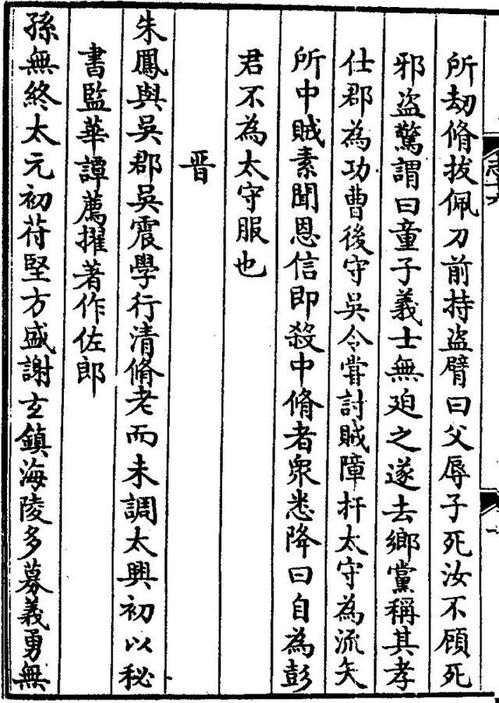 所劫脩拔佩刀前持盗臂曰父辱子死汝不顧死
邪盗驚謂曰童子義士無廹之遂去鄉黨稱其孝
仕郡為功曹後守吳令嘗討賊障扞太守為流矢
所中賊素聞恩信即殺中脩者衆悉降曰自為彭
君不為太守服也
晋
朱鳳與吳郡吳震學行清脩老而未調太興初以秘
書監華譚薦擢著作佐郎
孫無終太元初苻堅方盛謝玄鎮海陵多募義勇無